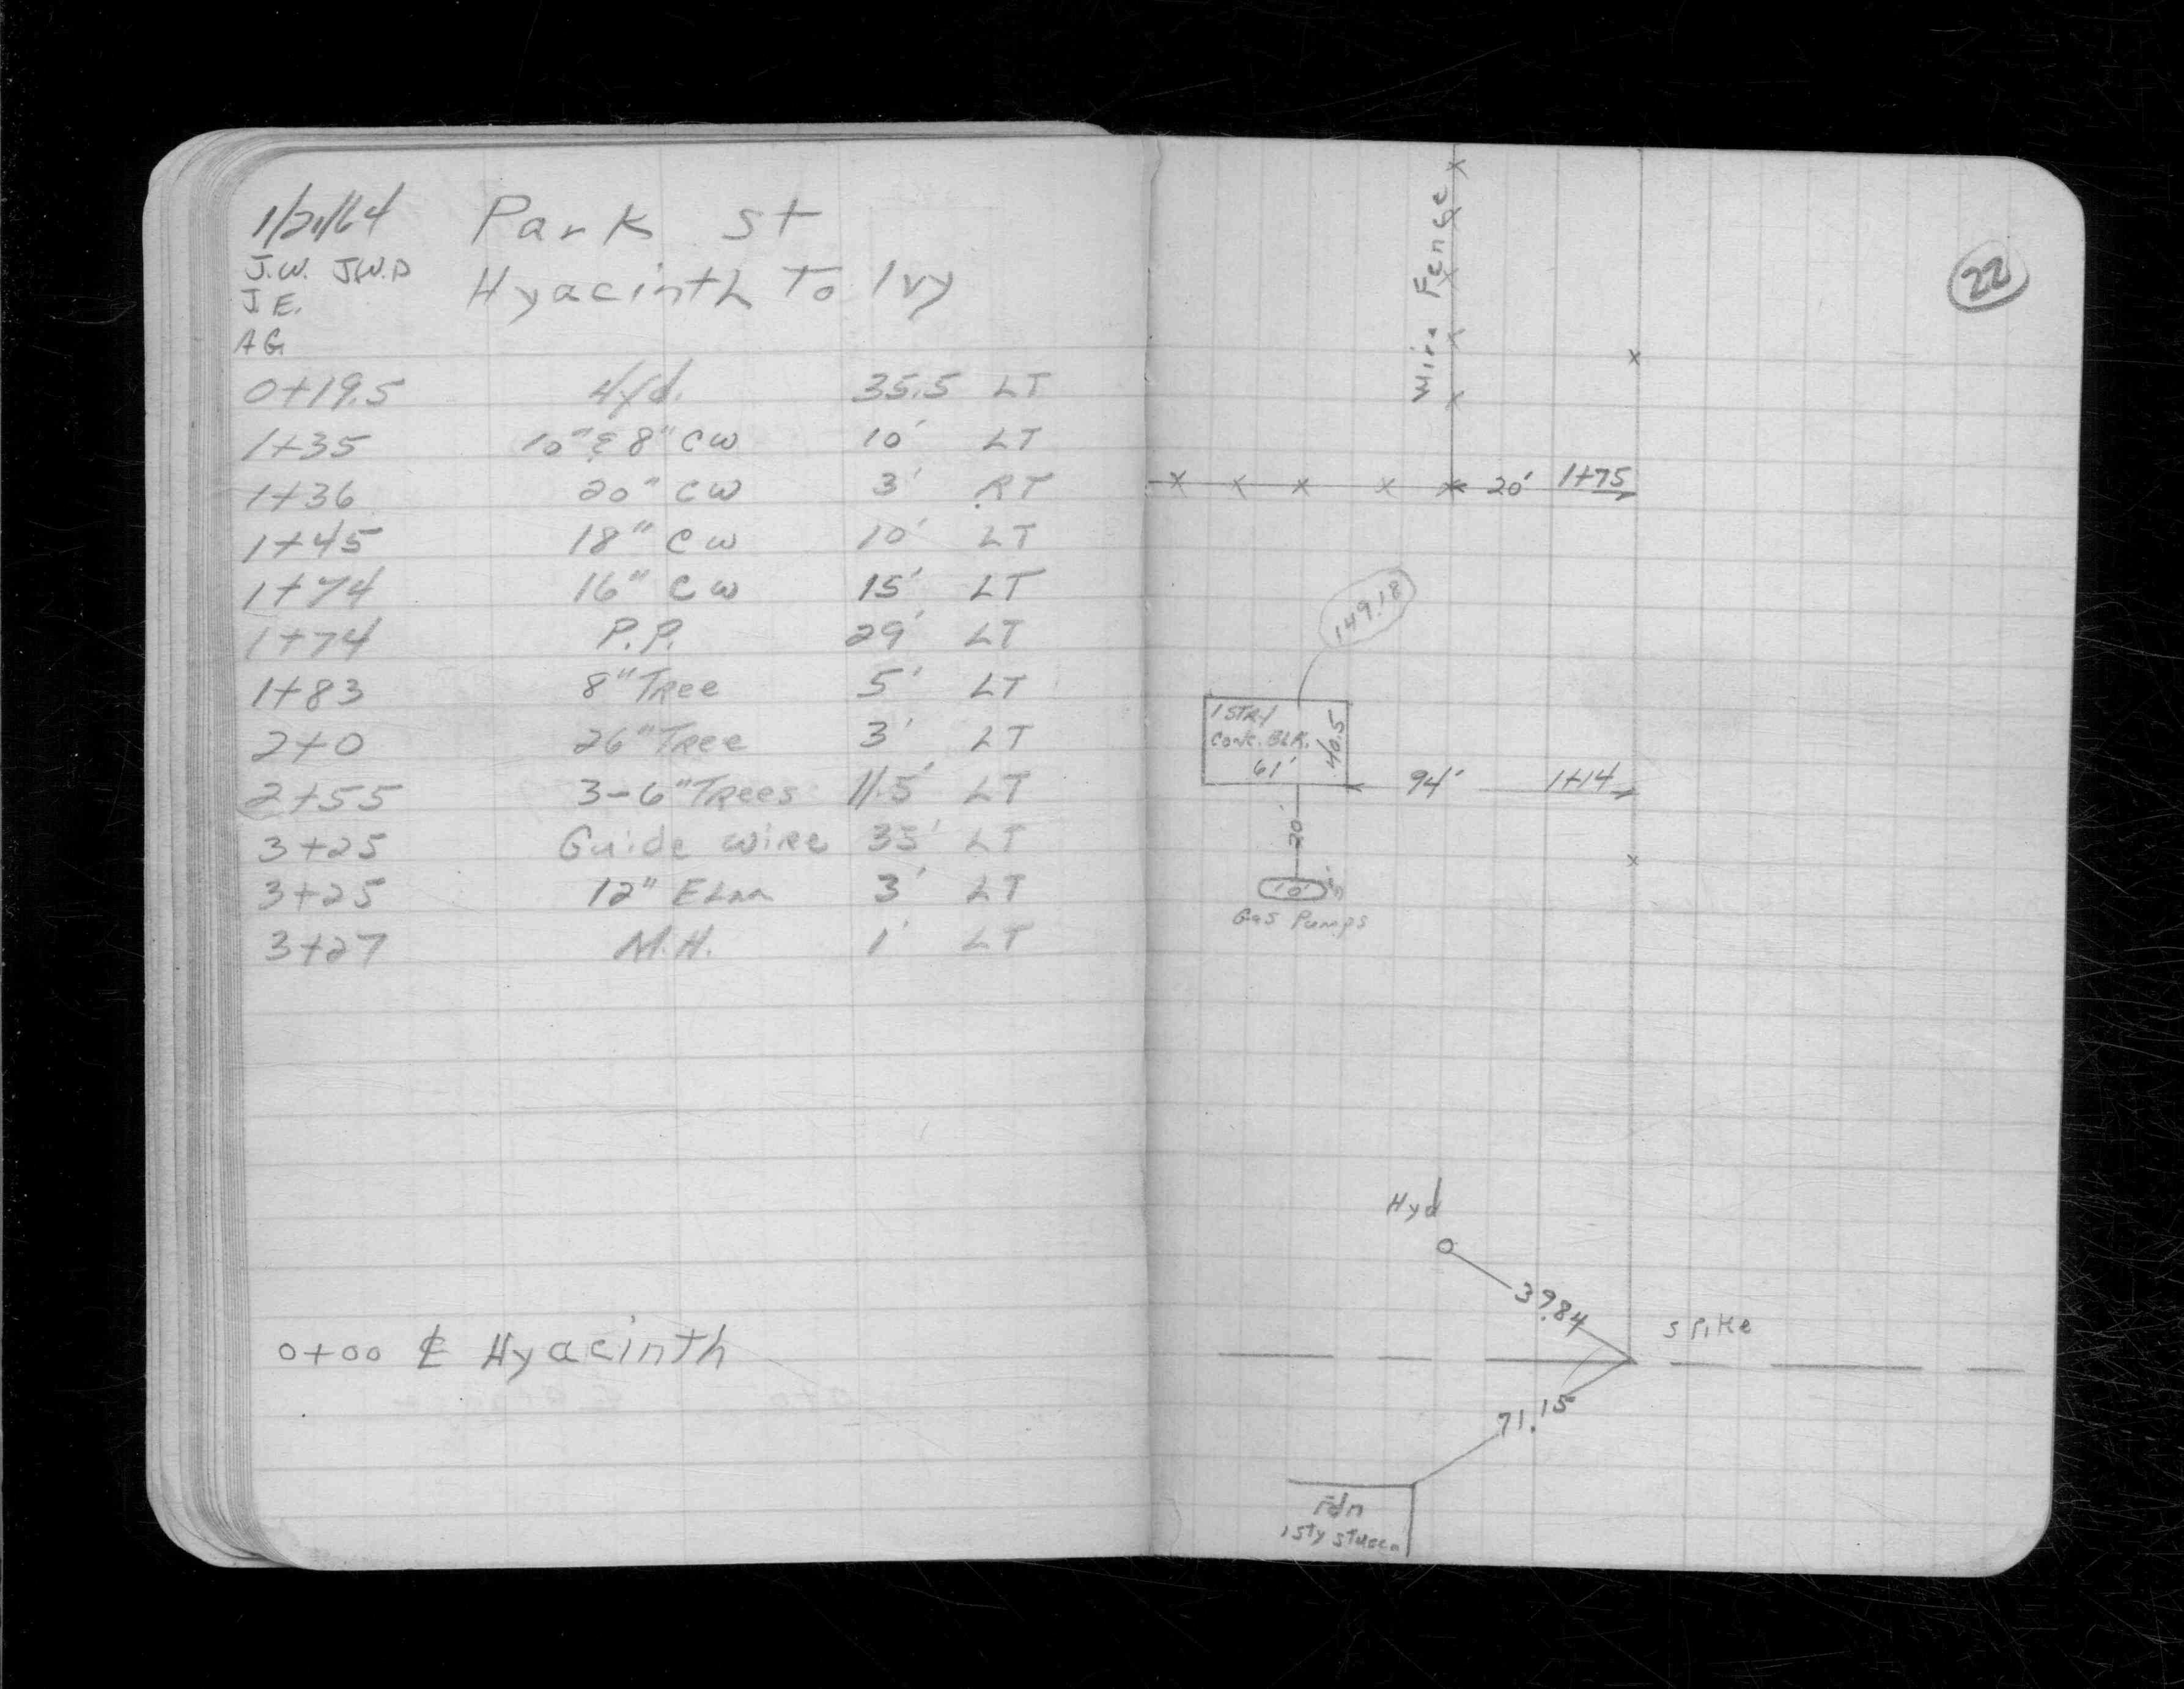 1/21/64 Park St
J.W. J.W.D
J E. Hyacinth To Ivy
A G
0+19.5 Hyd. 35.5 LT
1+35 10" & 8" CW 10' LT
1+36 20" CW 3' RT
1+45 18" CW 10' LT
1+74 16" CW 15' LT
1+74 P.P. 29' LT
1+83 8" Tree 5' LT
2+0 26" Tree 3' LT
2+55 3-6" Trees 11.5' LT
3+25 Guide wire 35' LT
3+25 12" Elm 3' LT
3+27 M.H. 1' LT
0+00 ℄ Hyacinth
22
Wire Fence
20' 1+75
149.18
1 STRY
Conc. BLK.
61'
40.5
94' 1+14
20
10'
Gas Pumps
Hyd
39.84
spike
71.15
Fdn
1 sty stucco